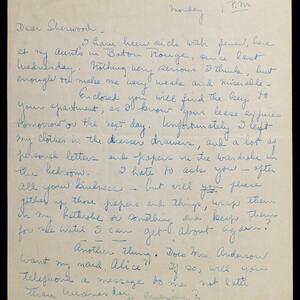 Monday P.M.
Dear Sherwood:
I have been sick with fever, here
at my aunt's in Baton Rouge, since last
Wednesday. Nothing very serious I think, but
enough to make me very weak and miserable.
Enclosed you will find the key to
your apartment, as I know your lease expires
tomorrow or the next day. Unfortunately I left
my clothes in the dresser drawers, and a lot of
personal letters and papers in the wardrobe in
the bedroom. I hate to ask you – after
all your kindness – but will please
gather up those papers and things, wrap them
in my bathrobe or something and keep them
for me until I can get about again?
Another thing. Does Mrs. Anderson
want my maid, Alice? If so, will you
telephone a message to me not later
than Wednesday